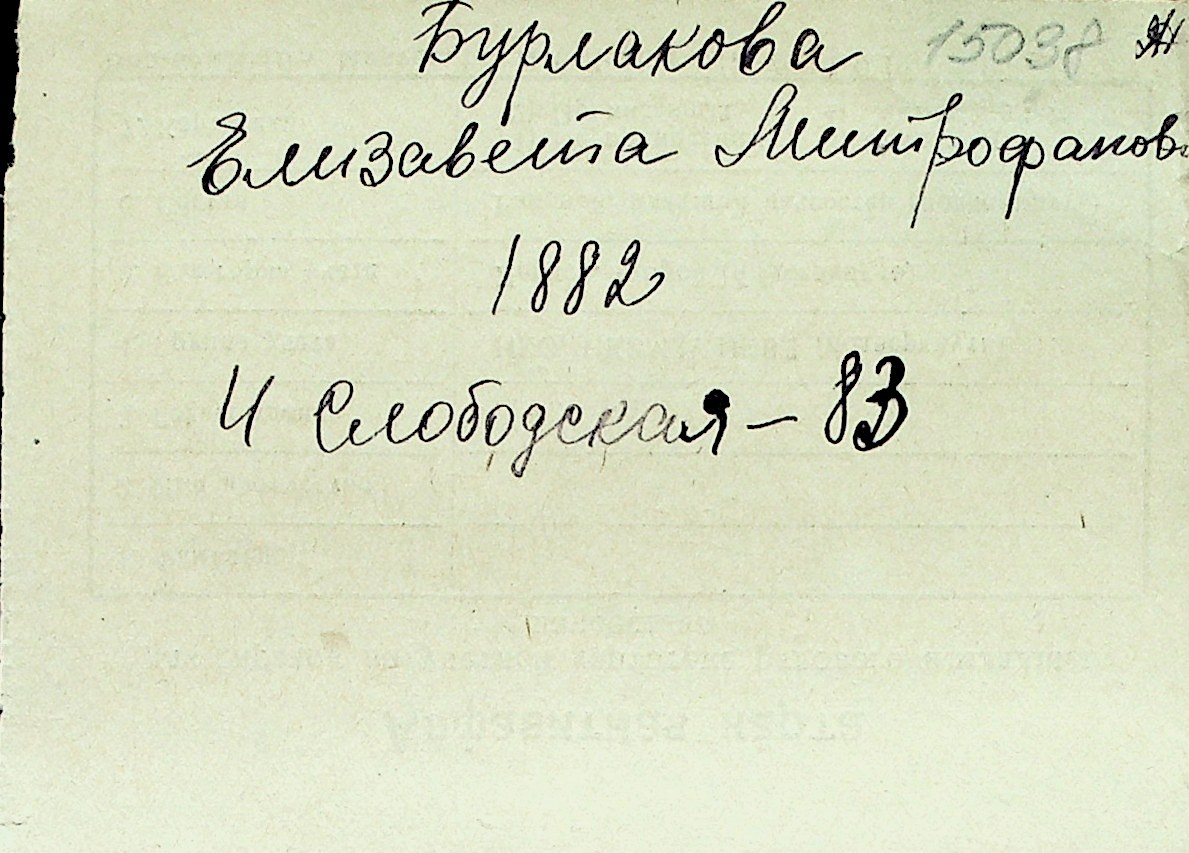 Бурлакова 15038
Елизавета Митрофанов
1882
4 Слободская - 83